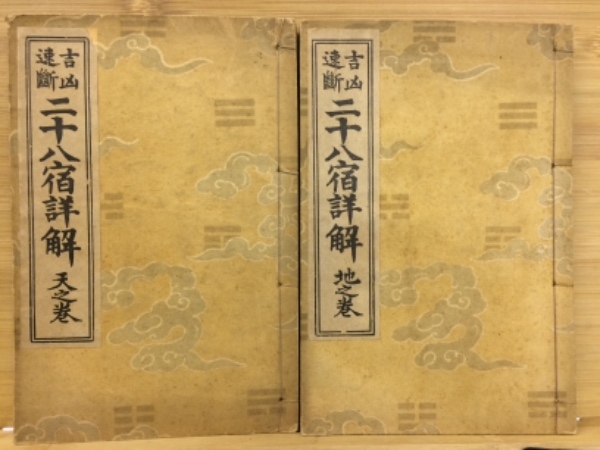 吉凶
速斷
二十八宿詳解
天之巻
吉凶
速斷
二十八宿詳解
地之巻